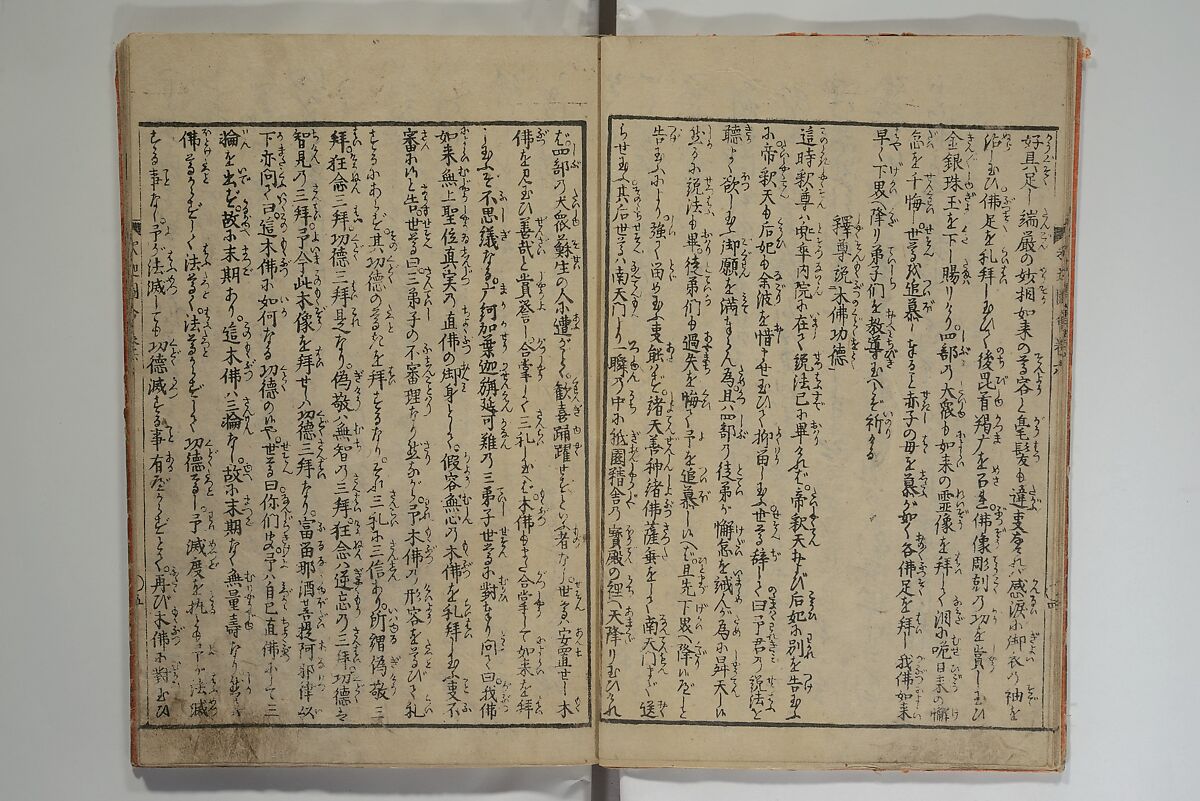 好具足し端厳の妙相如来の尊容と毫髪も違ま。感涙に御衣の袖を
沾し玉ひ佛足を礼拝し玉ひて後毘首羯广を召玉ひ佛像彫刻の功を賞し玉ひ
金銀珠玉を下し賜りけり四部の大衆も如来の霊像を拝して泪に咽び日来の懈
怠を千悔し世尊を追慕しまゐらすこと赤子の母を慕が如く各佛足を拝し我佛如来
早く下界へ降り弟子們を教導玉へとぞ祈ける
釋尊説木佛功徳
這時釈尊ハ兜率内院に在して説法已に畢けれバ帝釈天并び后妃に別を告玉ふ
に帝釈天も后妃も余波を惜ませ玉ひて抑留し玉ふ世尊辞して曰予君の説法を
聴まく欲して御願を満ん為且ハ四部の徒弟が懈怠を誡んが為に昇天しい
然るに説法も畢徒弟們も過失を悔て予を追慕しいへバ且先下界へ降いべしと
告玉ふにより強て留め玉ふ事能ハず諸天善神諸佛薩埵をして南天門まで送
らせ玉ふ其后世尊ハ南天門より瞬の中に祇園精舎の宝殿の裡へ天降り玉ひけれ
ば四部の大衆蘇生の人に遭がごとく歓喜踊躍せずといふ者なし世尊ハ安置せし木
佛を見玉ひ善哉と賞誉し合掌して三礼し玉へバ木佛もまた合掌して如来を拝
し玉ふぞ不思議なる广訶迦葉迦旃延阿難の三弟子世尊に對ひまゐらせ問て曰我佛
如来無上聖位真実の直佛の御身として假容無心の木佛を礼拝し玉ふ事不
審にいと告世尊曰三弟子の不審理なり然ながら予木佛の形容を尊びて礼
するにあらず且ハ功徳の尊きを拝するなりそれ三礼に三信あり所謂偽敬三
拝狂念三拝功徳三拝是なり偽敬ハ無智の三拝狂念ハ逆忘の三拝功徳ハ
智見の三拝予今此木像を拝せしハ功徳三拝なり富留那酒菩提阿那律以
下亦問て曰這木佛ハ如何なる功徳のいや世尊曰你們聴け予ハ自己直佛にして三
輪を出ず故に末期あり這木佛ハ三輪なし故に末期なく無量寿なり然ども
佛尊からずして法尊く法尊からずして功徳尊し予滅度を執るとも予が法滅
する事なし予が法滅しても功徳滅する事有べからずとて再び木佛に對玉ひ